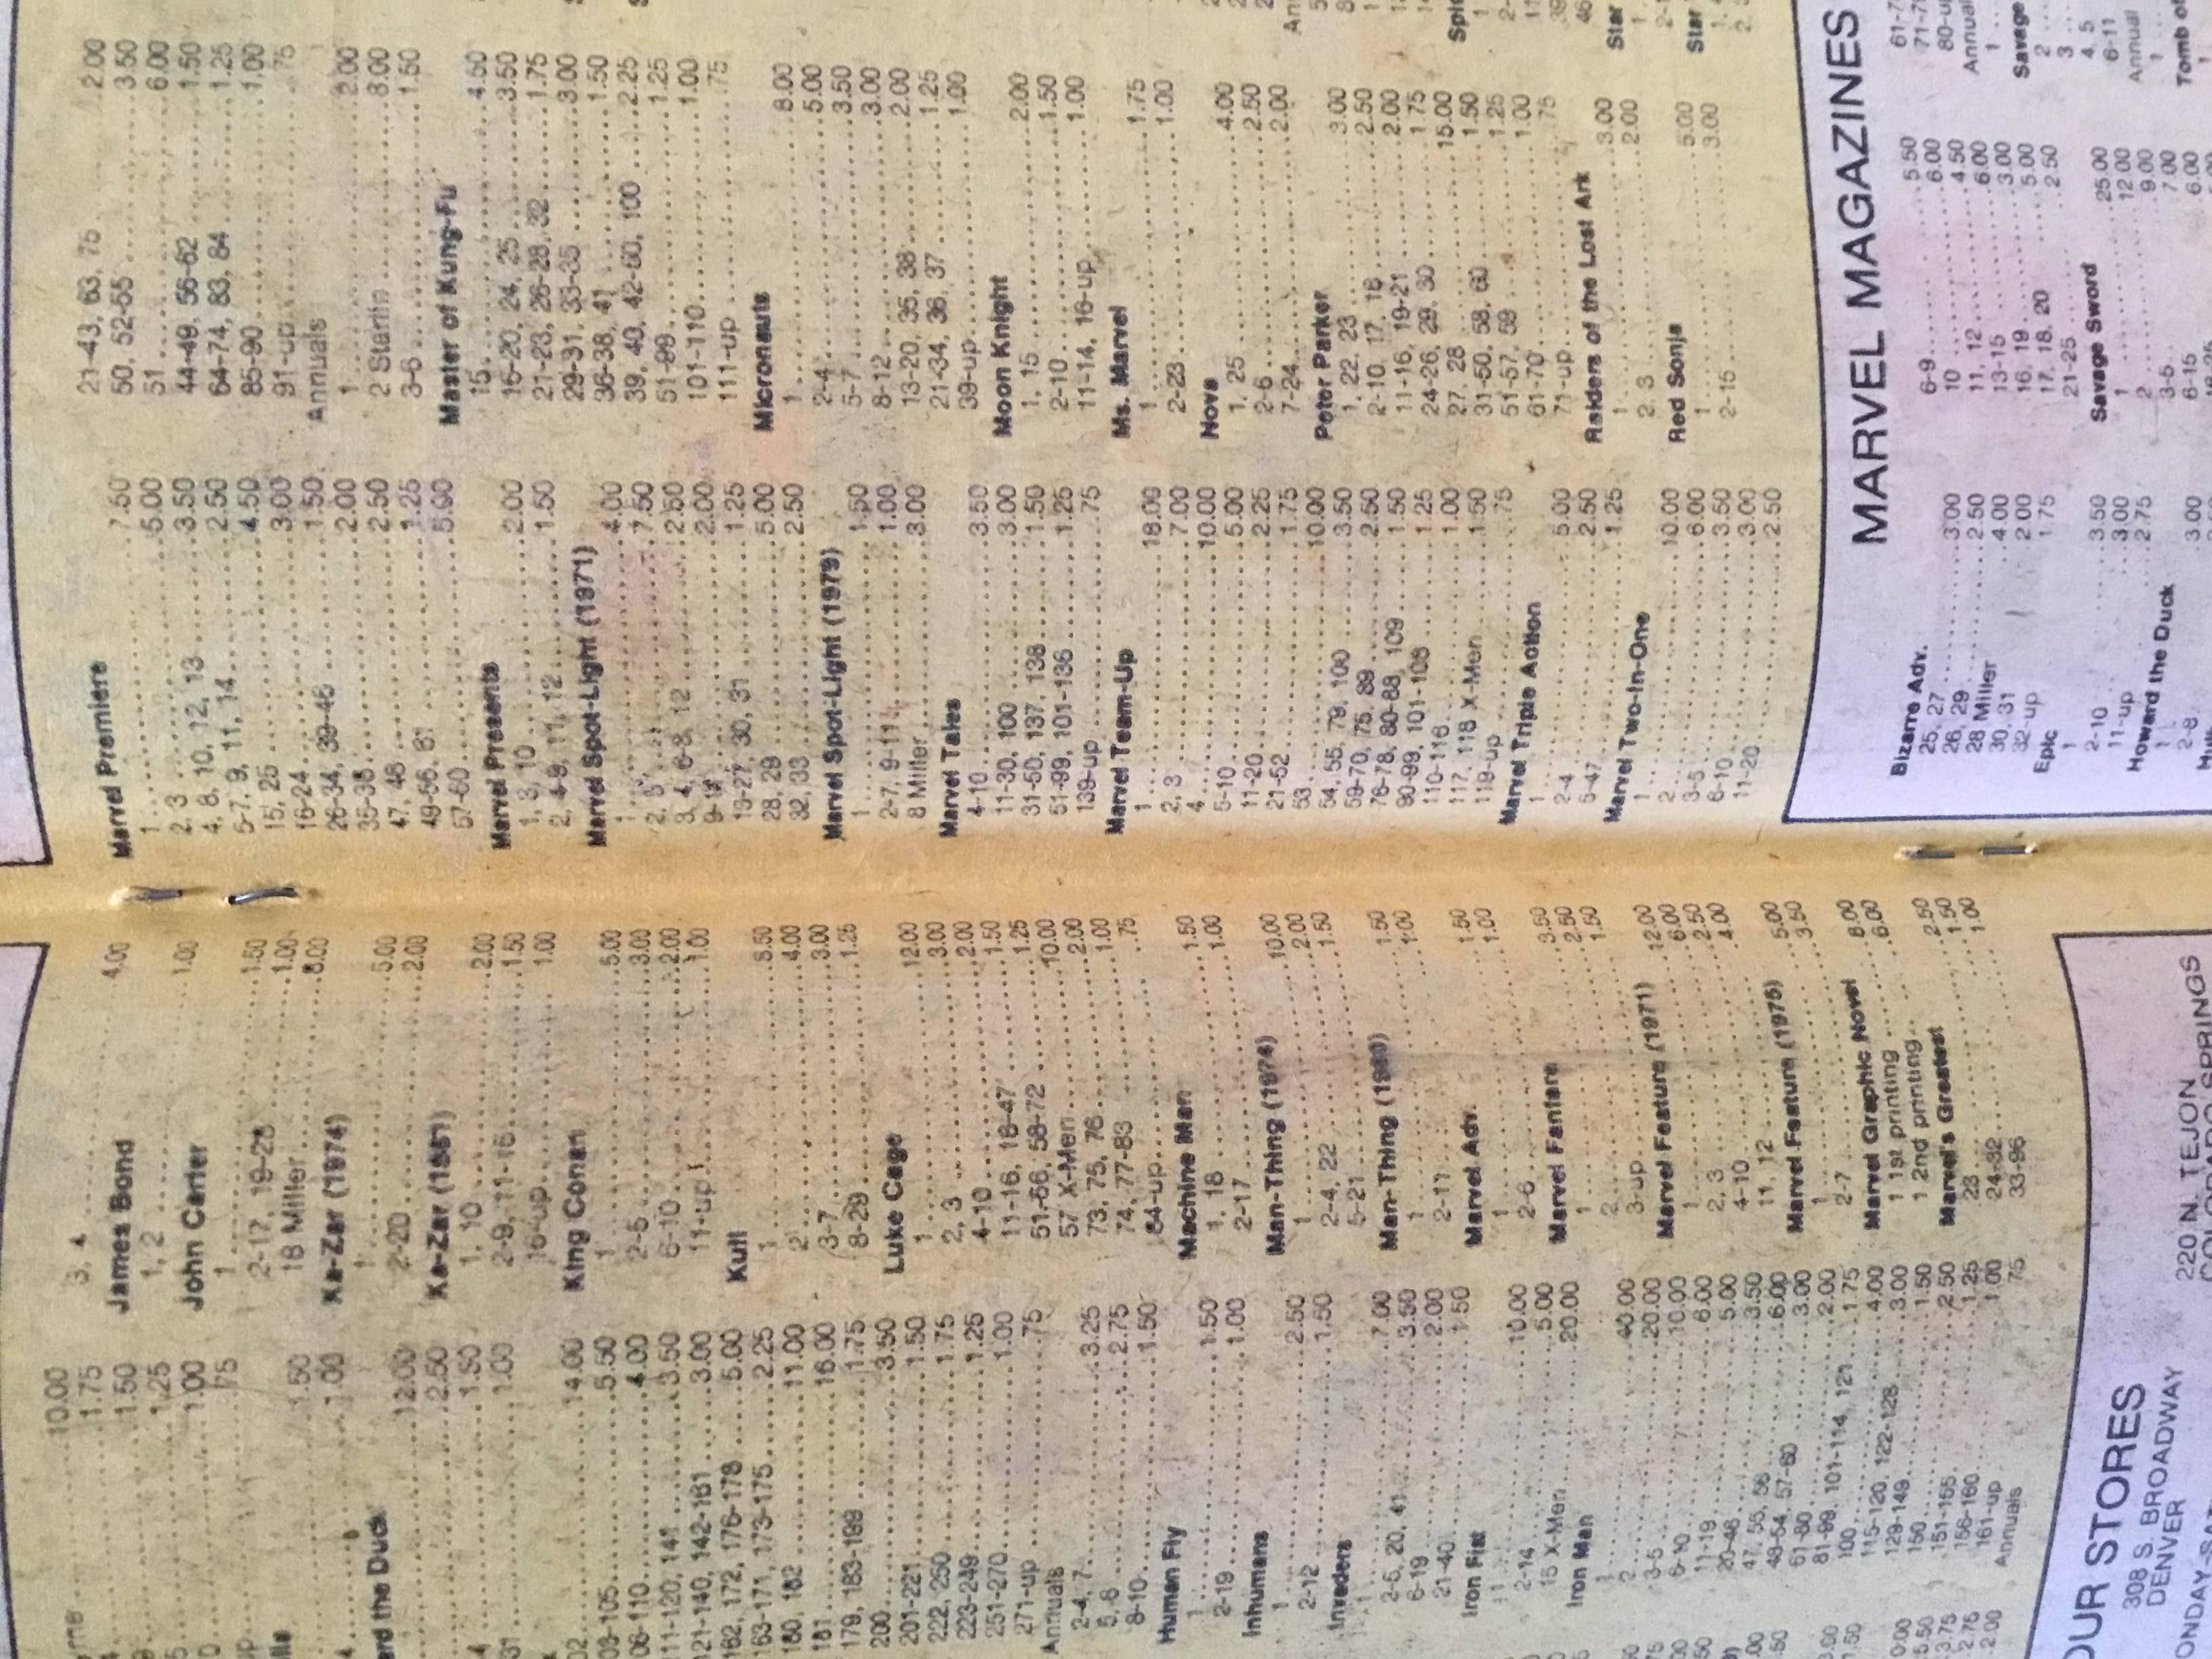 10.00
1.75
1.50
1.25
1.00
.75
1.50
1.00
ard the Duck
12.00
2.50
4 1.50
31 1.00
02 14.00
03-105 5.50
06-110 4.00
11-120, 141 3.50
121-140, 142-161 3.00
162, 172, 176-178 5.00
163-171, 173-175 2.25
180, 182 11.00
181 16.00
179, 183-199 1.75
200 3.50
201-221 1.50
222, 250 1.75
223-249 1.25
251-270 1.00
271-up .75
Annuals
2-4, 7 3.25
5, 6 2.75
8-10 1.50
Human Fly
1 1.50
2-19 1.00
Inhumans
1 2.50
2-12 1.50
Invaders
1 7.00
2-5, 20, 41 3.50
6-19 2.00
21-40 1.50
Iron Fist
1 10.00
2-14 5.00
15 X-Men 20.00
Iron Man
1 40.00
2 20.00
3-5 10.00
6-10 6.00
11-19 5.00
20-46 3.50
47, 55, 56 6.00
48-54, 57-60 3.00
61-80 2.00
81-99, 101-114, 121 1.75
100 4.00
115-120, 122-128 3.00
129-149 1.50
150 2.50
151-155 1.25
156-160 1.00
161-up .75
Annuals
OUR STORES
308 S. BROADWAY
DENVER
3, 4 4.00
James Bond
1, 2 1.00
John Carter
1 1.50
2-17, 19-28 1.00
18 Miller 8.00
Ka-Zar (1974)
1 5.00
2-20 2.00
Ka-Zar (1981)
1, 10 2.00
2-9, 11-15 1.50
16-up 1.00
King Conan
1 5.00
2-5 3.00
6-10 2.00
11-up 1.00
Kull
1 5.50
2 4.00
3-7 3.00
8-29 1.25
Luke Cage
1 12.00
2, 3 3.00
4-10 2.00
11-16, 18-47 1.50
51-66, 58-72 1.25
57 X-Men 10.00
73, 75, 76 2.00
74, 77-83 1.00
84-up .75
Machine Man
1, 18 1.50
2-17 1.00
Man-Thing (1974)
1 10.00
2-4, 22 2.00
5-21 1.50
Man-Thing (1980)
1 1.50
2-11 1.00
Marvel Adv.
1 1.50
2-6 1.00
Marvel Fanfare
1 3.50
2 2.50
3-up 1.50
Marvel Feature (1971)
1 12.00
2, 3 6.00
4-10 2.50
11, 12 4.00
Marvel Feature (1975)
1 5.00
2-7 3.50
Marvel Graphic Novel
1 1st printing 8.00
1 2nd printing 6.00
Marvel's Greatest
23 2.50
24-32 1.50
33-96 1.00
220 N. TEJON
COLORADO SPRINGS
Marvel Premiere
1 7.50
2, 3 5.00
4, 8, 10, 12, 13 3.50
5-7, 9, 11, 14 2.50
15, 25 4.50
16-24 3.00
26-34, 39-46 1.50
35-38 2.00
47, 48 2.50
49-56, 61 1.25
57-60 5.00
Marvel Presents
1, 3, 10 2.00
2, 4-9, 11, 12 1.50
Marvel Spot-Light (1971)
1 4.00
2, 5 7.50
3, 4, 6-8, 12 2.50
9-11 2.00
13-27, 30, 31 1.25
28, 29 5.00
32, 33 2.50
Marvel Spot-Light (1979)
1 1.50
2-7, 9-11 1.00
8 Miller 3.00
Marvel Tales
4-10 3.50
11-30, 100 3.00
31-50, 137, 138 1.50
51-99, 101-136 1.25
139-up .75
Marvel Team-Up
1 18.00
2, 3 7.00
4 10.00
5-10 5.00
11-20 2.25
21-52 1.75
53 10.00
54, 55, 79, 100 3.50
59-70, 75, 89 2.50
76-78, 80-88, 109 1.50
90-99, 101-108 1.25
110-116 1.00
117, 118 X-Men 1.50
119-up .75
Marvel Triple Action
1 5.00
2-4 2.50
5-47 1.25
Marvel Two-In-One
1 10.00
2 6.00
3-5 3.50
6-10 3.00
11-20 2.50
21-43, 63, 75 2.00
50, 52-55 3.50
51 6.00
44-49, 56-62 1.50
64-74, 83, 84 1.25
85-90 1.00
91-up .75
Annuals
1 2.00
2 Starlin 8.00
3-6 1.50
Master of Kung-Fu
15 4.50
16-20, 24, 25 3.50
21-23, 26-28, 32 1.75
29-31, 33-35 3.00
36-38, 41 1.50
39, 40, 42-50, 100 2.25
51-99 1.25
101-110 1.00
111-up .75
Micronauts
1 8.00
2-4 5.00
5-7 3.50
8-12 3.00
13-20, 35, 38 2.00
21-34, 36, 37 1.25
39-up 1.00
Moon Knight
1, 15 2.00
2-10 1.50
11-14, 16-up 1.00
Ms. Marvel
1 1.75
2-23 1.00
Nova
1, 25 4.00
2-6 2.50
7-24 2.00
Peter Parker
1, 22, 23 3.00
2-10, 17, 18 2.50
11-16, 19-21 2.00
24-26, 29, 30 1.75
27, 28 15.00
31-50, 58, 60 1.50
51-57, 59 1.25
61-70 1.00
71-up .75
Raiders of the Lost Ark
1 3.00
2, 3 2.00
Red Sonja
1 5.00
2-15 3.00
MARVEL MAGAZINES
Bizarre Adv.
25, 27 3.00
26, 29 2.50
28 Miller 4.00
30, 31 2.00
32-up 1.75
Epic
1 3.50
2-10 3.00
11-up 2.75
Howard the Duck
1 3.00
2-8
6-9 5.50
10 6.00
11, 12 4.50
13-15 6.00
16, 19 3.00
17, 18, 20 5.00
21-25 2.50
Savage Sword
1 25.00
2 12.00
3-5 9.00
6-15 7.00
6.00
61-7
71-7
80-u
Annual
1
Savage
2
3
4, 5
6-11
Annual
1
Tomb of
1